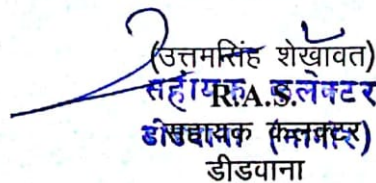 (उत्तमसिंह शेखावत)
सहायक कलेक्टर
R.A.S.
सहायक कलक्टर
डीडवाना